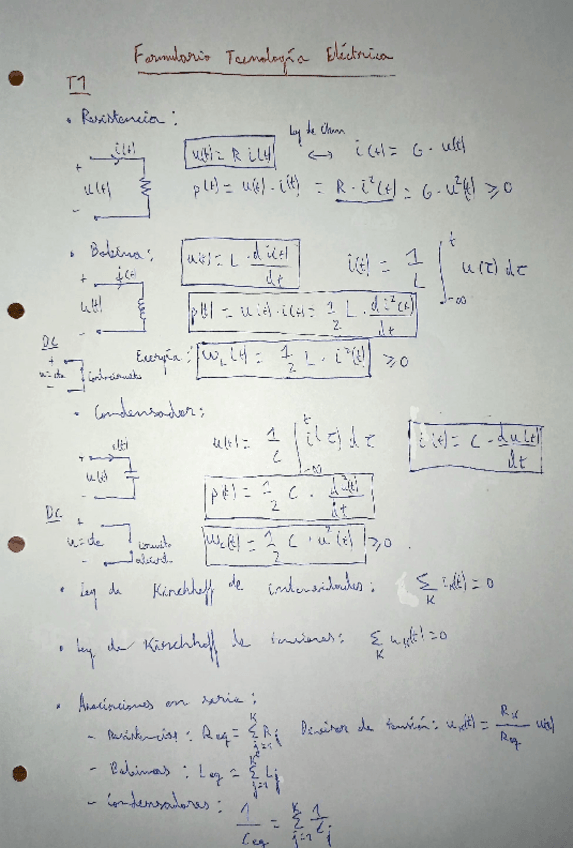 Formulario Tecnología Eléctrica
T1
• Resistencia:
i(t)
+
u(t)
-
u(t) = R i(t)
Ley de Ohm
↔ i(t) = G · u(t)
p(t) = u(t) · i(t) = R · i²(t) = G · u²(t) ≥ 0
• Bobina:
i(t)
+
u(t)
-
u(t) = L · d i(t) / dt
i(t) = 1/L ∫_{-∞}^{t} u(τ) dτ
p(t) = u(t) · i(t) = 1/2 L · d i²(t) / dt
DC
+
u=dc
-
Cortocircuito
Energía: W_L(t) = 1/2 L · i²(t) ≥ 0
• Condensador:
i(t)
+
u(t)
-
u(t) = 1/C ∫_{-∞}^{t} i(τ) dτ
i(t) = C · d u(t) / dt
p(t) = 1/2 C · d²(t) / dt
DC
+
u=dc
-
circuito
abierto
W_c(t) = 1/2 C · u²(t) ≥ 0.
• Ley de Kirchhoff de intensidades: ∑_K i_K(t) = 0
• Ley de Kirchhoff de tensiones: ∑_K u_K(t) = 0
• Asociaciones en serie:
- Resistencias: Req = ∑_{j=1}^{K} R_j Divisor de tensión: u_K(t) = R_K/Req u(t)
- Bobinas: Leq = ∑_{j=1}^{K} L_j
- Condensadores: 1/Ceq = ∑_{j=1}^{K} 1/C_j